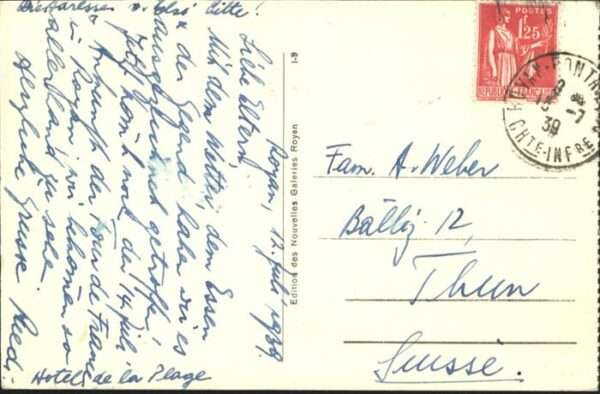 Briefadresse s. Hotel bitte!
Royan, 12. Juli 1939
Liebe Eltern,
Mit dem Wetter, dem Essen
& der Gegend haben wir es
ausgezeichnet getroffen,
jetzt kommt noch der 14. Juli
& Ankunft der Tour de France
in Royan, wir bekommen so
allerhand zu sehen.
Herzliche Grüsse
Hotel de la Plage
1-9
Edition des Nouvelles Galeries Royan
POSTES
1F25
REPUBLIQUE FRANÇAISE
ROYAN-PONTAILLAC
13 -7
39
CHTE-INFRE
Fam. A. Weber
Bälliz 12,
Thun
Suisse.